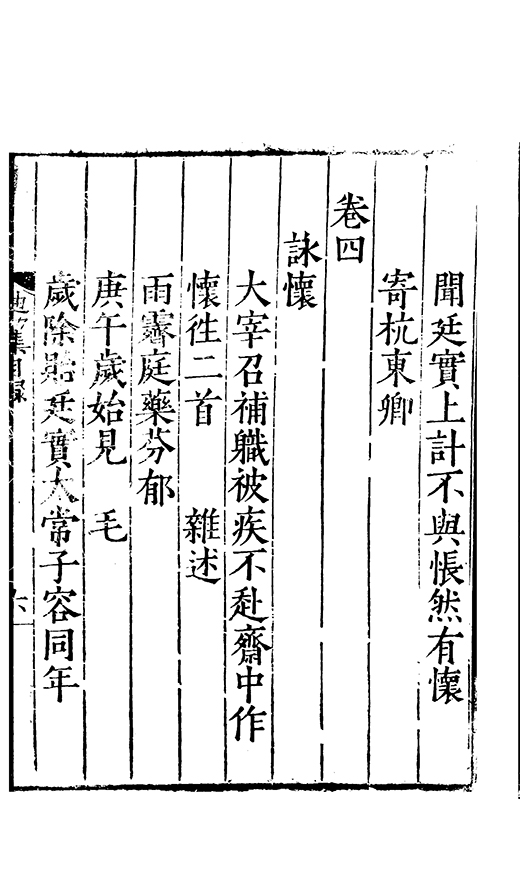 聞廷實上計不與悵然有懷
寄杭東卿
卷四
詠懷
大宰召補職被疾不赴齋中作
懷徃二首　雜述
雨霽庭藥芬郁
庚午歲始見　毛
歲除貽廷實太常子容同年
迪功集目錄
六